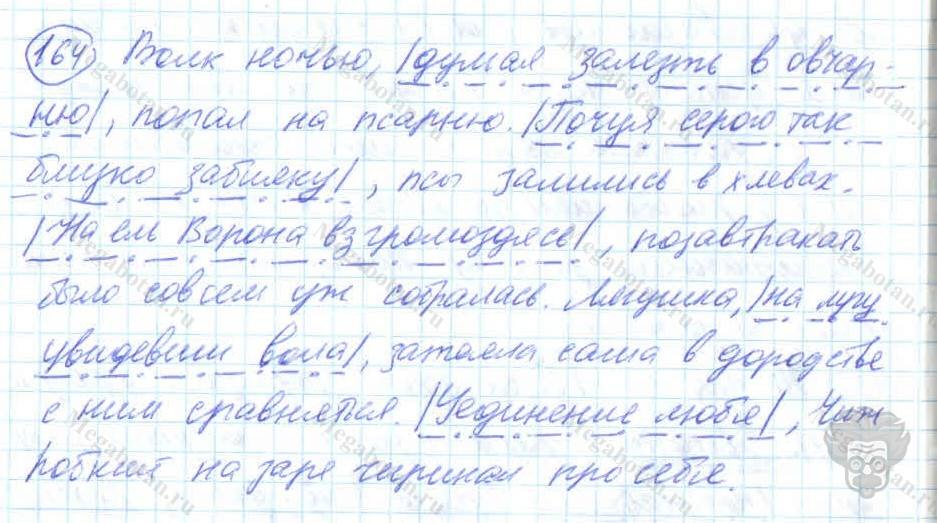 164) Волк ночью, |думая залезть в овчар-
ню|, попал на псарню. |Почуя серого так
близко забияку|, псы залились в хлевах.
|На ель Ворона взгромоздясь|, позавтракать
было совсем уж собралась. Лягушка, |на лугу
увидевши вола|, затеяла сама в дородстве
с ним сравняться. |Уединение любя|, Чиж
робкий на заре чирикал про себя.
Megabotan.ru